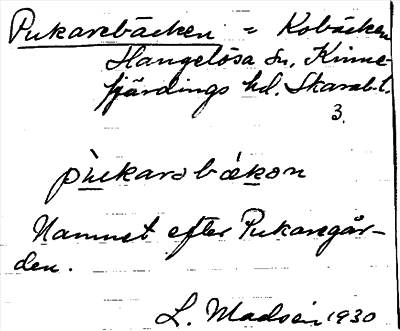 Pukarebäcken = Kobäcken
Hangelösa sn, Kinne-
fjärdings hd. Skarab.l.
3.
pùkarabǽkən
Namnet efter Pukaregår-
den.
L. Madsén 1930